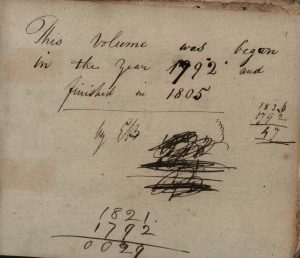 This Volume was began
in the Year 1792 and
finished in 1805
1792
47
by
1821
1792
0029